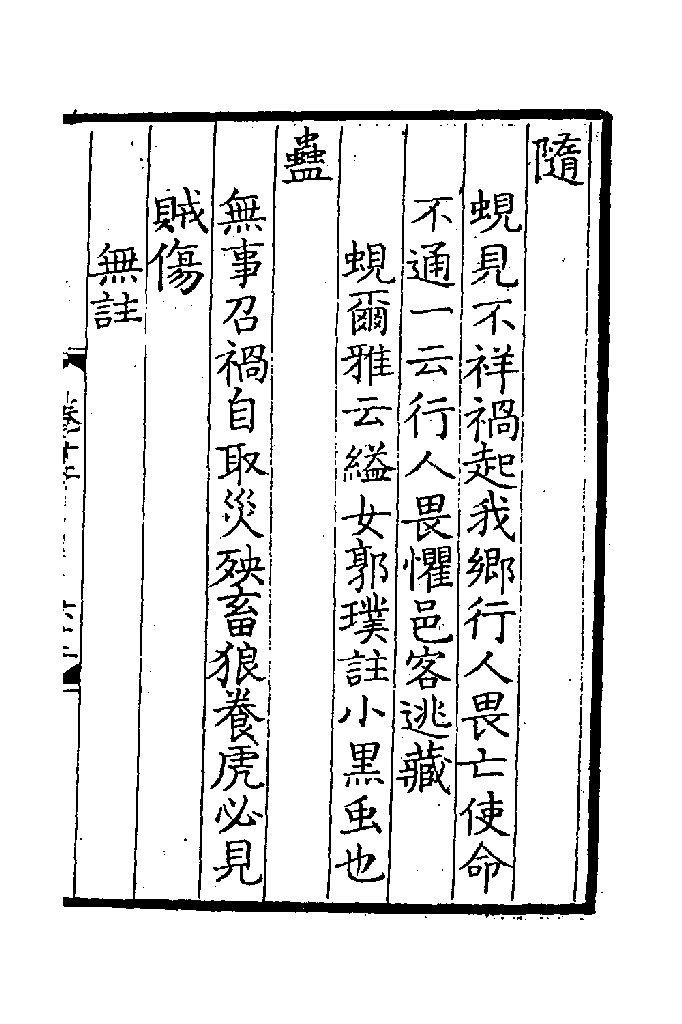 隨
蜆見不祥禍起我鄉行人畏亡使命
不通一云行人畏懼邑客逃藏
蜆爾雅云縊女郭璞註小黒䖝也
蠱
無事召禍自取災殃畜狼養虎必見
賊傷
無註